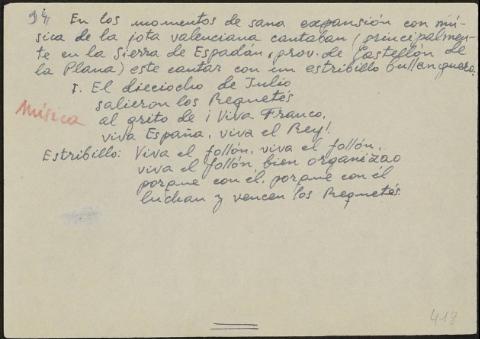 94 En los momentos de sana expansión con mú-
sica de la jota valenciana cantaban (principalmen-
te en la Sierra de Espadán, prov. de Castellón de
la Plana) este cantar con un estribillo bullanguero.
I. El dieciocho de Julio
salieron los Requetés
Música
al grito de ¡Viva Franco,
viva España, viva el Rey!
Estribillo: Viva el follón, viva el follón,
viva el follón bien organizao
porque con él, porque con él
luchan y vencen los Requetés.
418